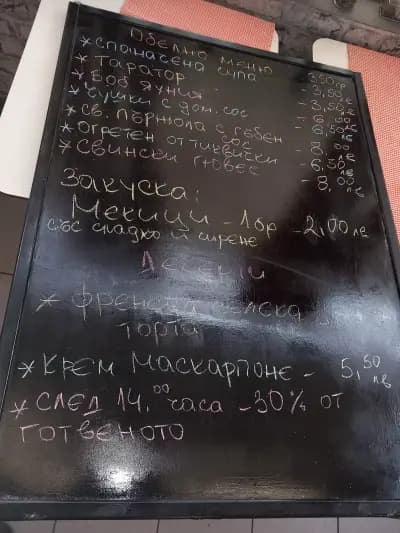 Обедно меню
*Спаначена супа - 3,50
*Таратор - 3,50 лв
*Боб яхния - 6,00
*Чушки с дом. сос - 6,50 лв
*Св. пържола с гъбен сос - 8,00
*Огретен от тиквички - 6,50 лв
*Свински гювеч - 8,00 лв
Закуска:
Мекици - 1бр - 2,00 лв
със сладко и сирене
Десерти
* Френска селска
торта
*Крем Маскарпоне - 5,50 лв
*След 14,00 часа -30% от
готвеното